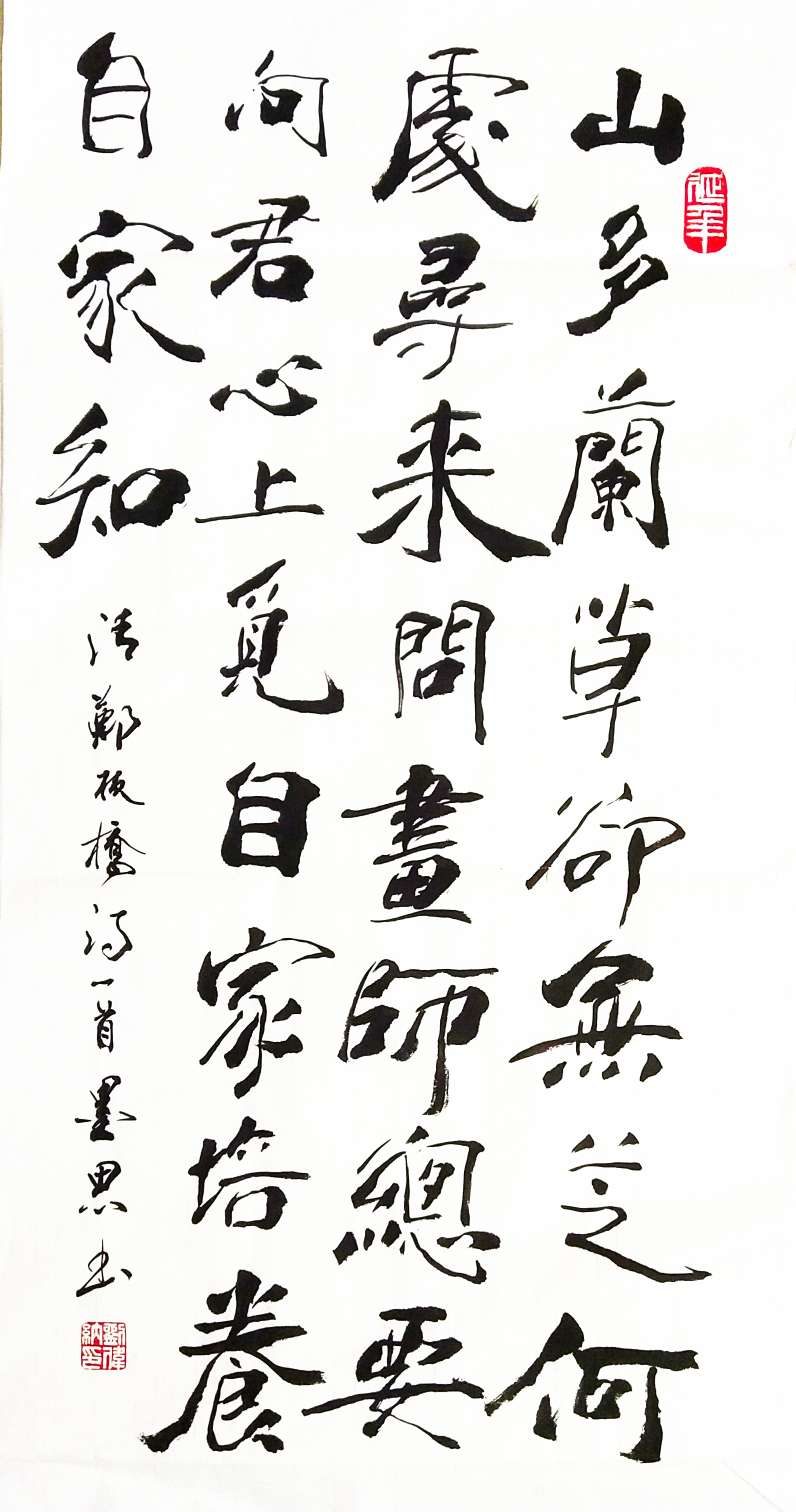 延年
山多蘭草卻無芝何
處尋來問畫師總要
向君心上覓自家培養
自家知
清鄭板橋詩一首墨思书